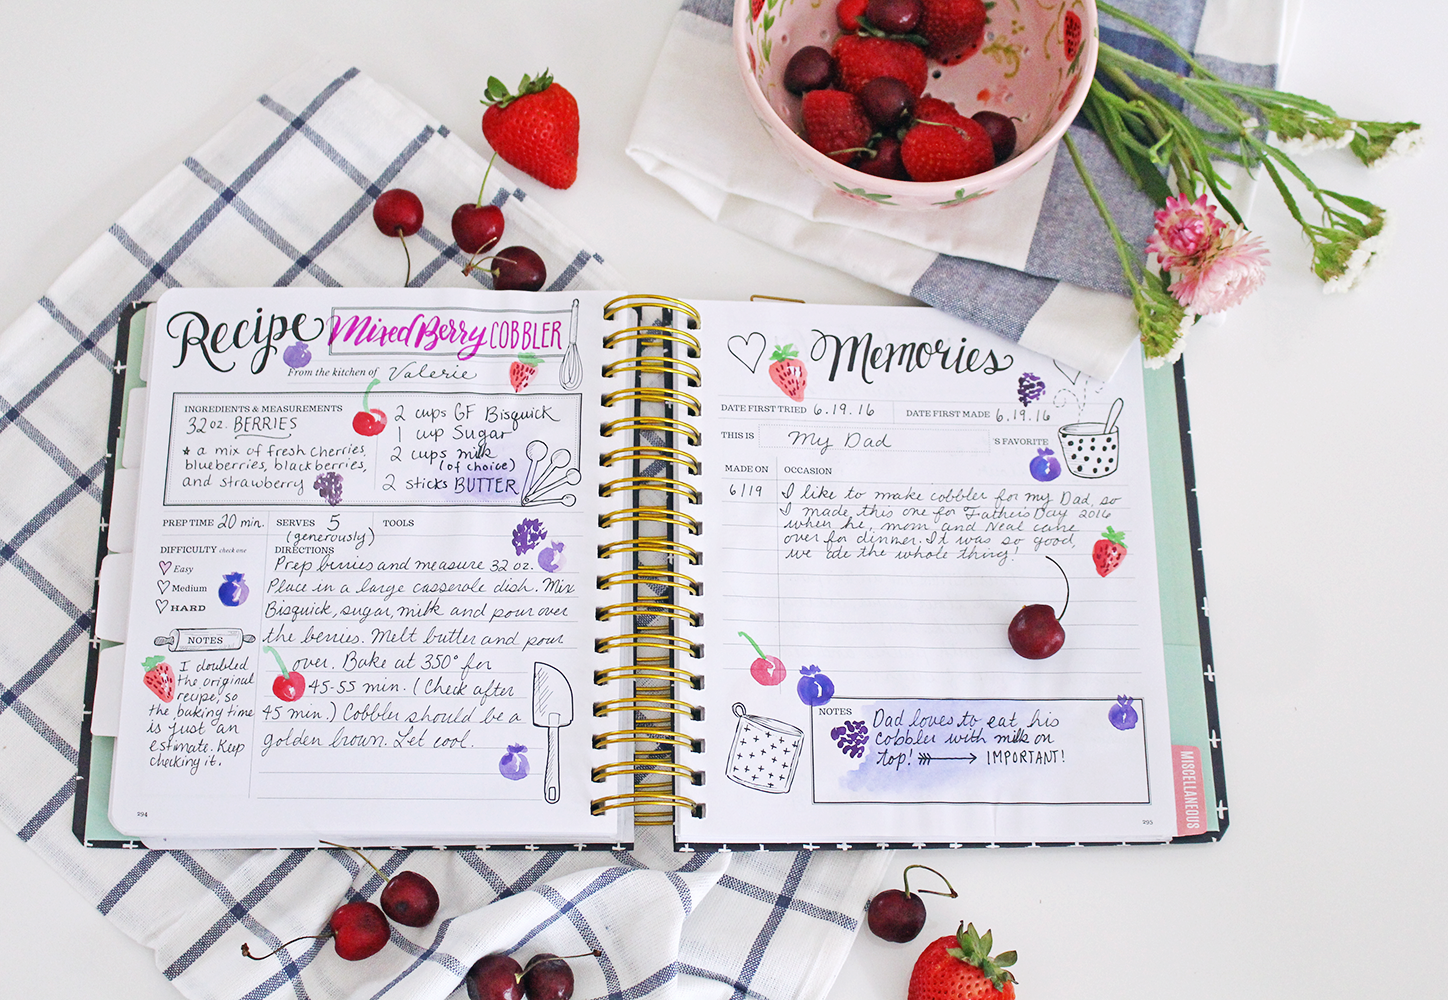 Recipe Mixed Berry COBBLER
From the kitchen of Valerie
INGREDIENTS & MEASUREMENTS
32 oz. BERRIES
* a mix of fresh cherries,
blueberries, blackberries,
and strawberry
2 cups GF Bisquick
1 cup Sugar
2 cups milk
(of choice)
2 sticks BUTTER
PREP TIME 20 min.
SERVES 5
(generously)
TOOLS
DIFFICULTY check one
Easy
Medium
HARD
NOTES
I doubled
the original
recipe, so
the baking time
is just an
estimate. Keep
checking it.
DIRECTIONS
Prep berries and measure 32 oz.
Place in a large casserole dish. Mix
Bisquick, sugar, milk and pour over
the berries. Melt butter and pour
over. Bake at 350° for
45-55 min. (Check after
45 min.) Cobbler should be a
golden brown. Let cool.
294
Memories
DATE FIRST TRIED 6.19.16
DATE FIRST MADE 6.19.16
THIS IS My Dad 'S FAVORITE
MADE ON
OCCASION
6/19
I like to make cobbler for my Dad, so
I made this one for Father's Day 2016
when he, mom and Neal came
over for dinner. It was so good,
we ate the whole thing!
NOTES
Dad loves to eat his
cobbler with milk on
top! IMPORTANT!
295
MISCELLANEOUS